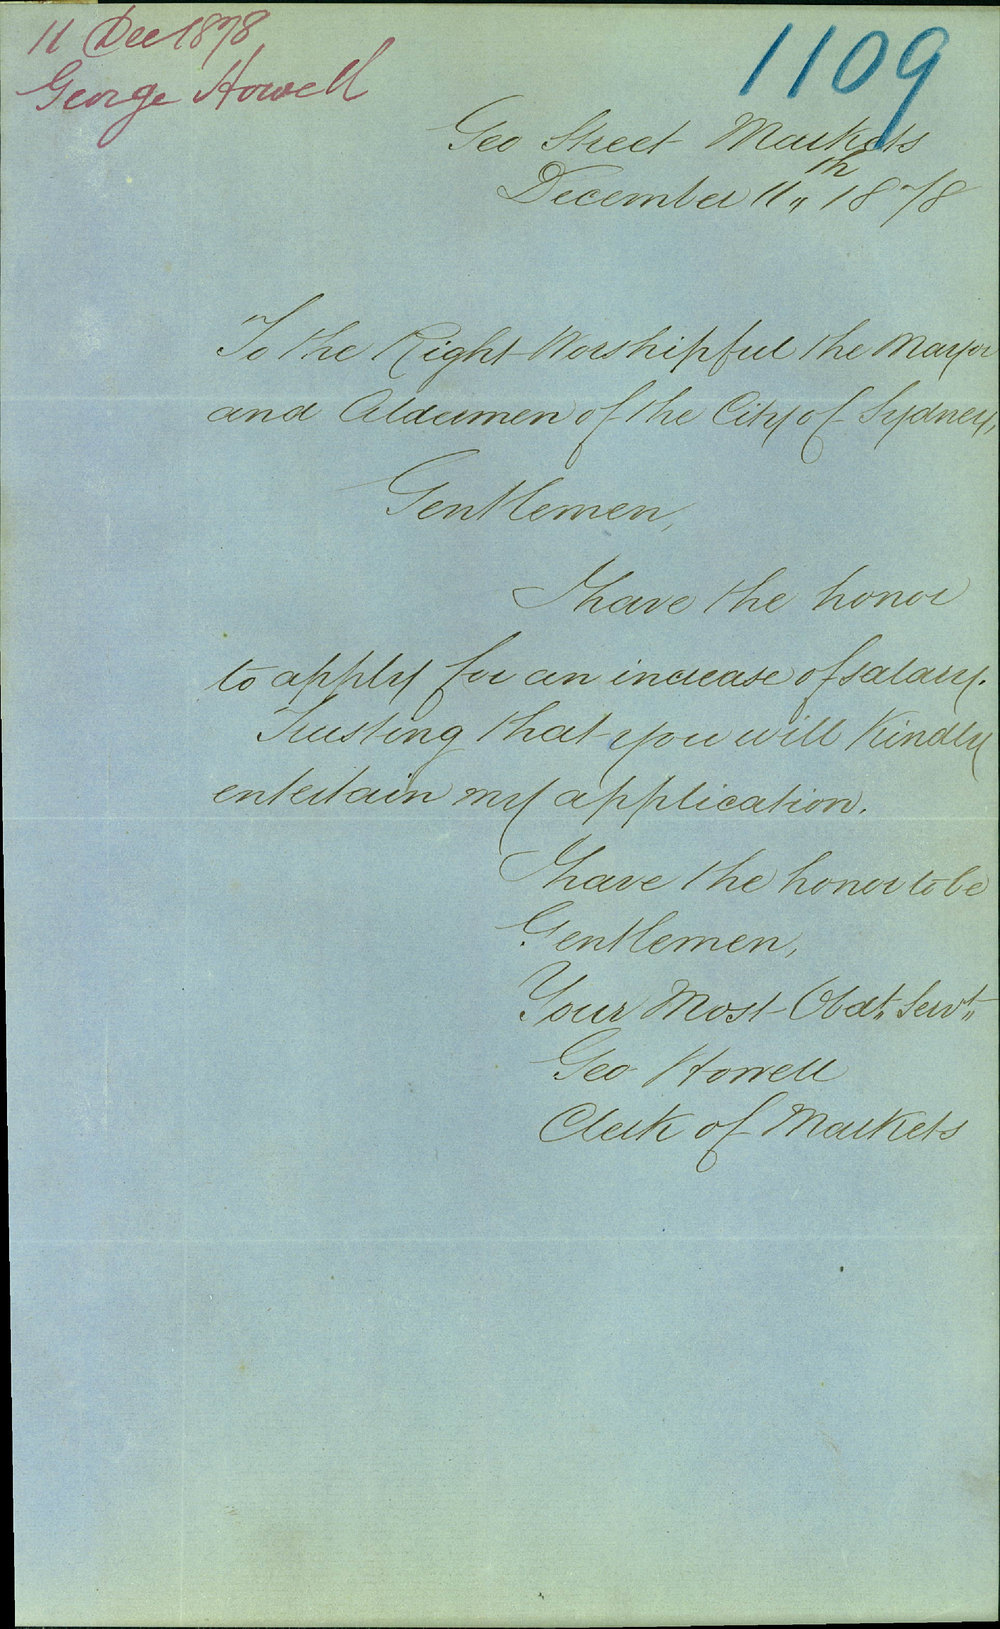 11 Dec 1878
George Howell
1109
Geo Street Markets
December 11th 1878
To the Right Worshipful the Mayor
and Aldermen of the City of Sydney,
Gentlemen,
I have the honor
to apply for an increase of salary.
Trusting that you will kindly
entertain my application.
I have the honor to be
Gentlemen,
Your Most Obdt,, Servt,,
Geo Howell
Clerk of Markets